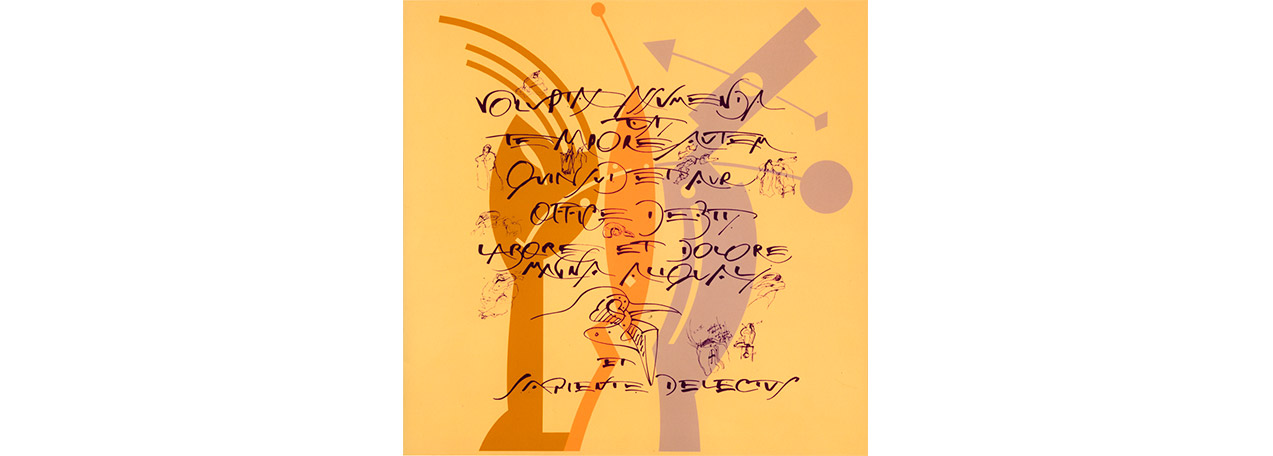 VOLUPTAS ASSUMENDA
EST
TEMPORE AUTEM
QUINSUD ET AUR
OFFICE DEBIT
LABORE ET DOLORE
MAGNA ALIQUAY
ET
SAPIENTE DELECTUS